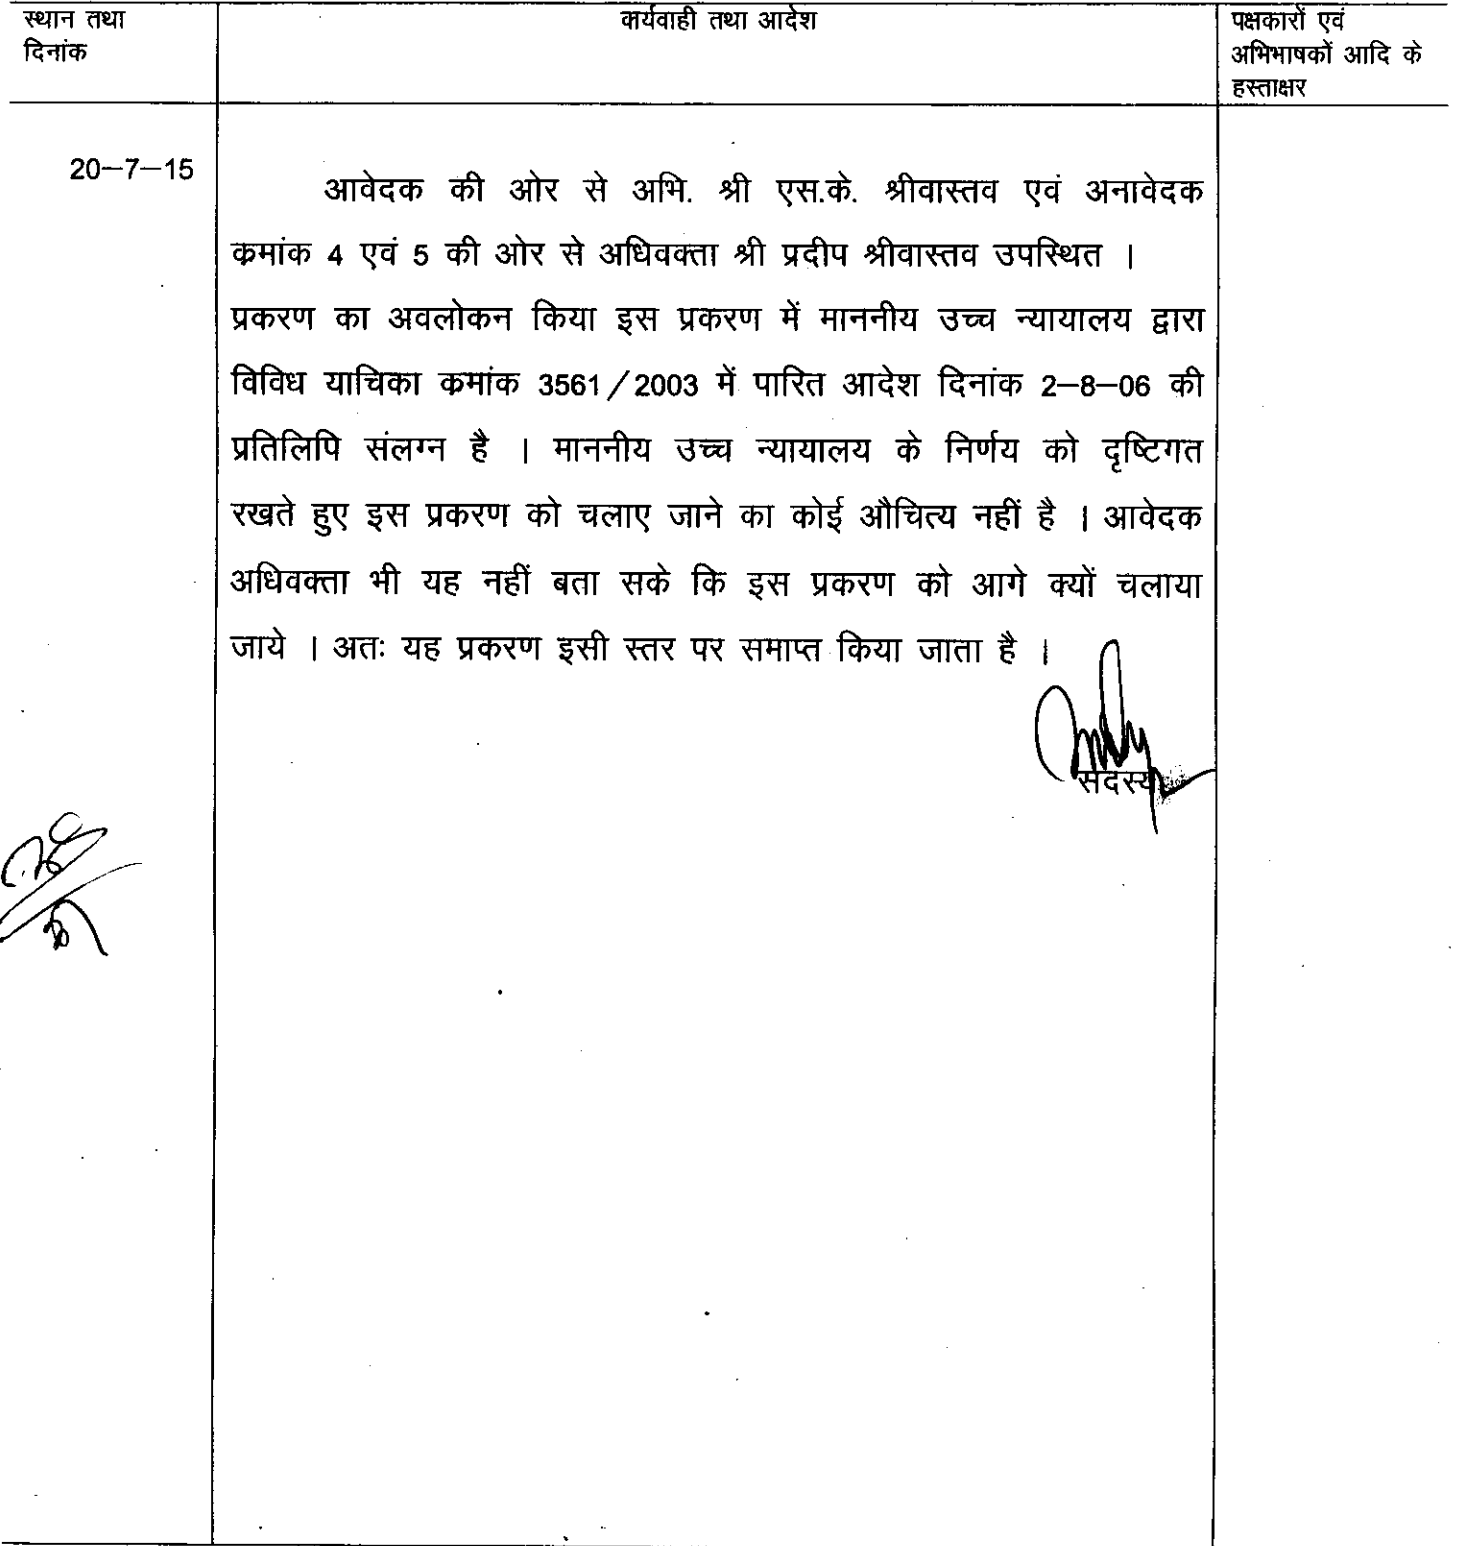 स्थान तथा
दिनांक
कार्यवाही तथा आदेश
पक्षकारों एवं
अभिभाषकों आदि के
हस्ताक्षर
20-7-15
आवेदक की ओर से अभि. श्री एस.के. श्रीवास्तव एवं अनावेदक
कमांक 4 एवं 5 की ओर से अधिवक्ता श्री प्रदीप श्रीवास्तव उपस्थित ।
प्रकरण का अवलोकन किया इस प्रकरण में माननीय उच्च न्यायालय द्वारा
विविध याचिका कमांक 3561/2003 में पारित आदेश दिनांक 2-8-06 की
प्रतिलिपि संलग्न है । माननीय उच्च न्यायालय के निर्णय को दृष्टिगत
रखते हुए इस प्रकरण को चलाए जाने का कोई औचित्य नहीं है । आवेदक
अधिवक्ता भी यह नहीं बता सके कि इस प्रकरण को आगे क्यों चलाया
जाये । अतः यह प्रकरण इसी स्तर पर समाप्त किया जाता है ।
सदस्य